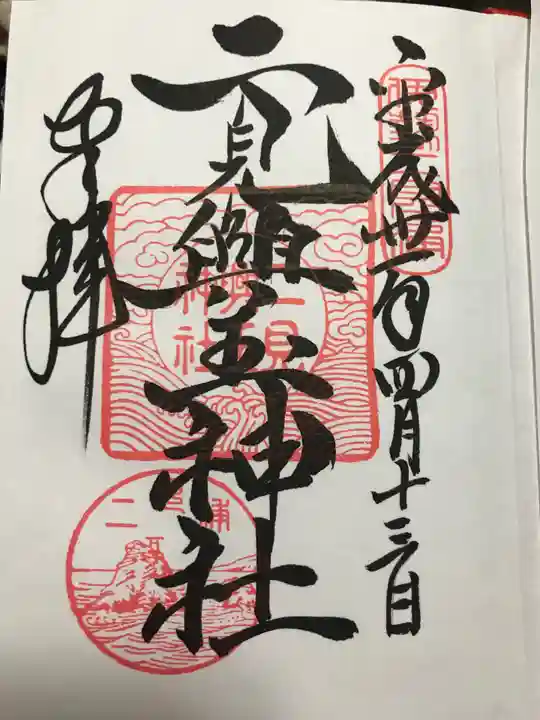 平成卅一年四月十三日
二見興玉神社
奉拝
二見興玉神社
二見浦